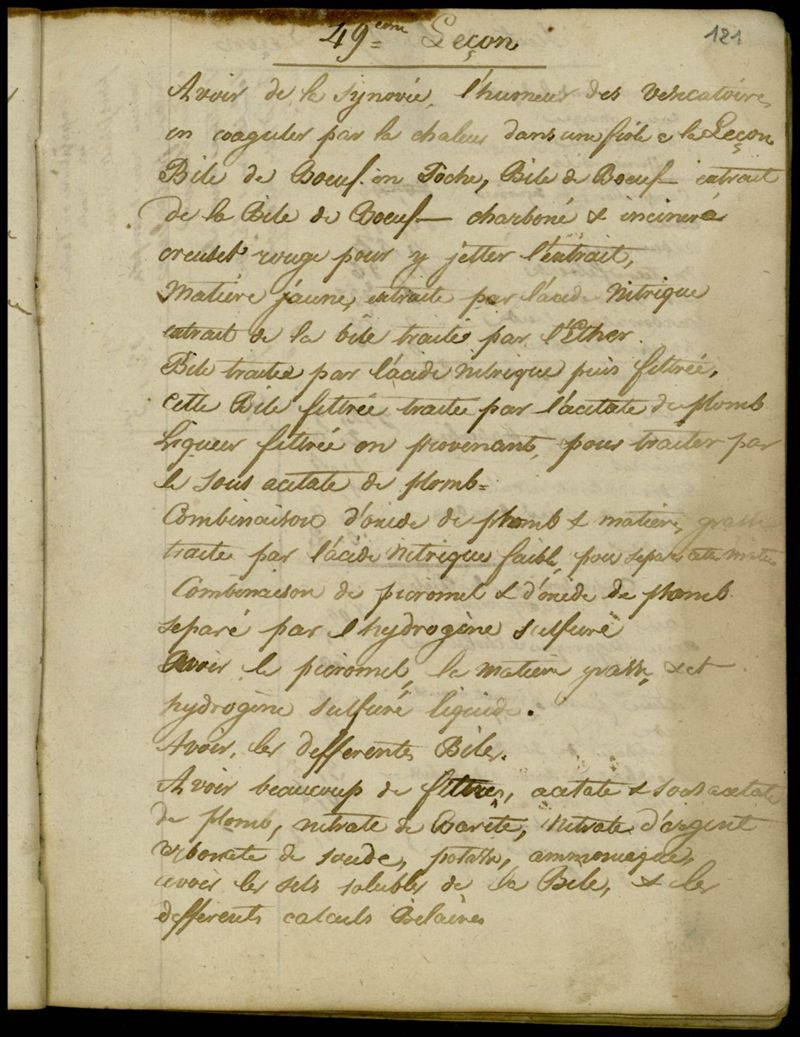 121
49eme Leçon
Avoir de la Synovie, l'humeur des Vesicatoires
en coaguler par la chaleur dans une fiole a la Leçon
Bile de Boeuf en Poche, Bile de Boeuf extrait
de la Bile de Boeuf charboné & incineré
creuset rouge pour y jetter l'extrait,
Matière jaune, extraite par l'acide Nitrique
extrait de la bile traitée par l'Ether.
Bile traitée par l'acide nitrique puis filtrée,
Cette Bile filtrée traitée par l'acetate de plomb
Liqueur filtrée en provenant, pour traiter par
le sous acetate de plomb=
Combinaison d'oxide de plomb & matière grasse
traitée par l'acide Nitrique faible, pour separer cette matière
Combinaison de picromel & d'oxide de plomb
separé par l'hydrogène sulfuré
Avoir le picromel, la matière grasse, & et
hydrogène sulfuré liquide.
Avoir les defferentes Biles.
Avoir beaucoup de filtres, acetate & sous acetate
de plomb, nitrate de Barite, Nitrate d'argent
carbonate de soude, potasse, ammoniaque,
avoir les sels solubles de la Bile, & les
defferents calculs Bilaires